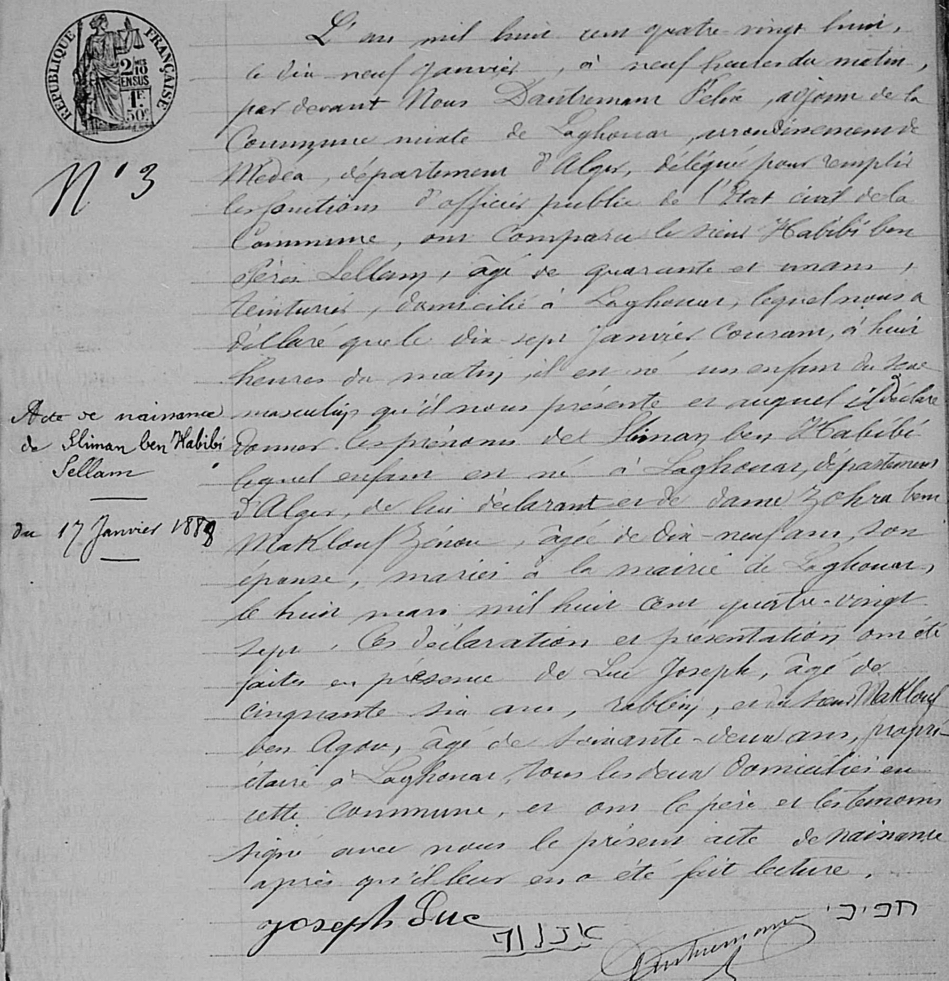 RÉPUBLIQUE FRANÇAISE
2/10 EN SUS
1F. 50c
N° 3
Acte de naissance
de Sliman ben Habibi
Sellam
du 17 Janvier 1888
L'an mil huit cent quatre-vingt huit,
le dix neuf Janvier, à neuf heures du matin,
par devant Nous Dautremant Félix, adjoint de la
Commune mixte de Laghouat, arrondissement de
Médéa, département d'Alger, délégué pour remplir
les fonctions d'officier public de l'Etat civil de la
Commune, ont Comparu le sieur Habibi ben
Sellam, âgé de quarante et un ans,
teinturier, domicilié à Laghouat, lequel nous a
déclaré que le dix-sept Janvier Courant, à huit
heures du matin, il est né un enfant du sexe
masculin qu'il nous présente et auquel il déclare
donner les prénoms de Sliman ben Habibi
lequel enfant est né à Laghouat, département
d'Alger, de lui déclarant et de dame Zohra bent
Maklouf Zénou, âgée de dix-neuf ans, son
épouse, mariés à la mairie de Laghouat,
le huit mars mil huit cent quatre-vingt
sept. Ces déclaration et présentation ont été
faites en présence de Luc Joseph, âgé de
cinquante six ans, rabbin, et du sieur Maklouf
ben Agou, âgé de soixante-deux ans, propri-
étaire à Laghouat, tous les deux domiciliés en
cette commune, et ont le père et les témoins
signé avec nous le présent acte de naissance
après qu'il leur en a été fait lecture.
Joseph Luc
חביבי
Dautremant